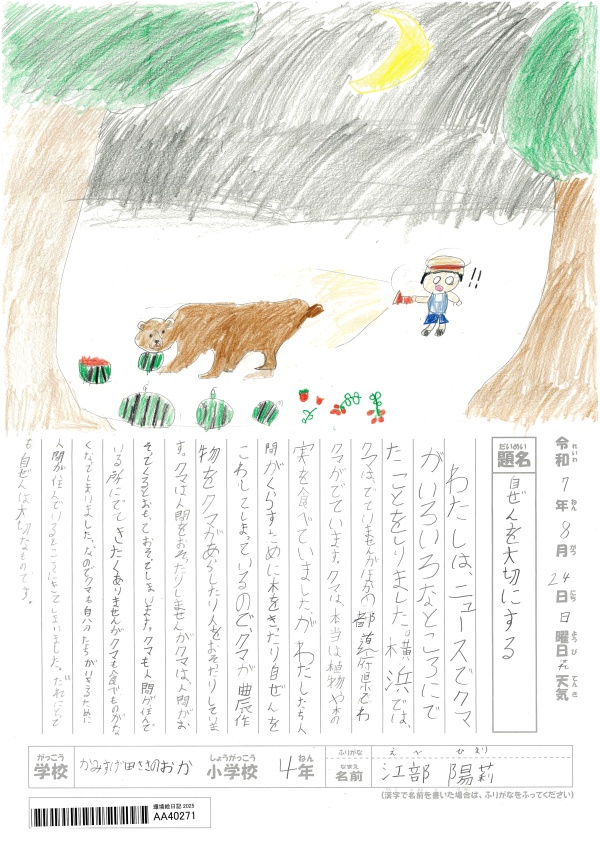 !!
令和 7年 8月 24日 日曜日 天気
れいわ ねん がつ にち ようび てんき
だいめい
題名
自ぜんを大切にする
わたしは、ニュースでクマ
がいろいろなところにで
たことをしりました。横浜では、
クマは、でていませんがほかの都道府県でわ
クマがでています。クマは、本当は植物や木の
実を食べていました。が、わたしたち人
間がくらすために木をきたり自ぜんを
こわしてしまっているので、クマが農作
物をクマがあらしたり人をおそたりしていま
す。クマは人間をおそたりしませんがクマは、人間がお
そてくるとおもっておそてしまいます。クマも人間が住んで
いる所にでてきたくありませんがクマも食べものがな
くなてしまいました。なのでクマも自分たちがいきるために
人間が住んでいるところにきてしまいました。だれにとって
も自ぜんは大切なものです。
がっこう
学校
かみすげ田ささのおか
しょうがっこう
小学校
4年
ねん
ふりがな
なまえ
名前
江部 陽莉
(漢字で名前を書いた場合は、ふりがなをふってください)
環境絵日記 2025
AA40271